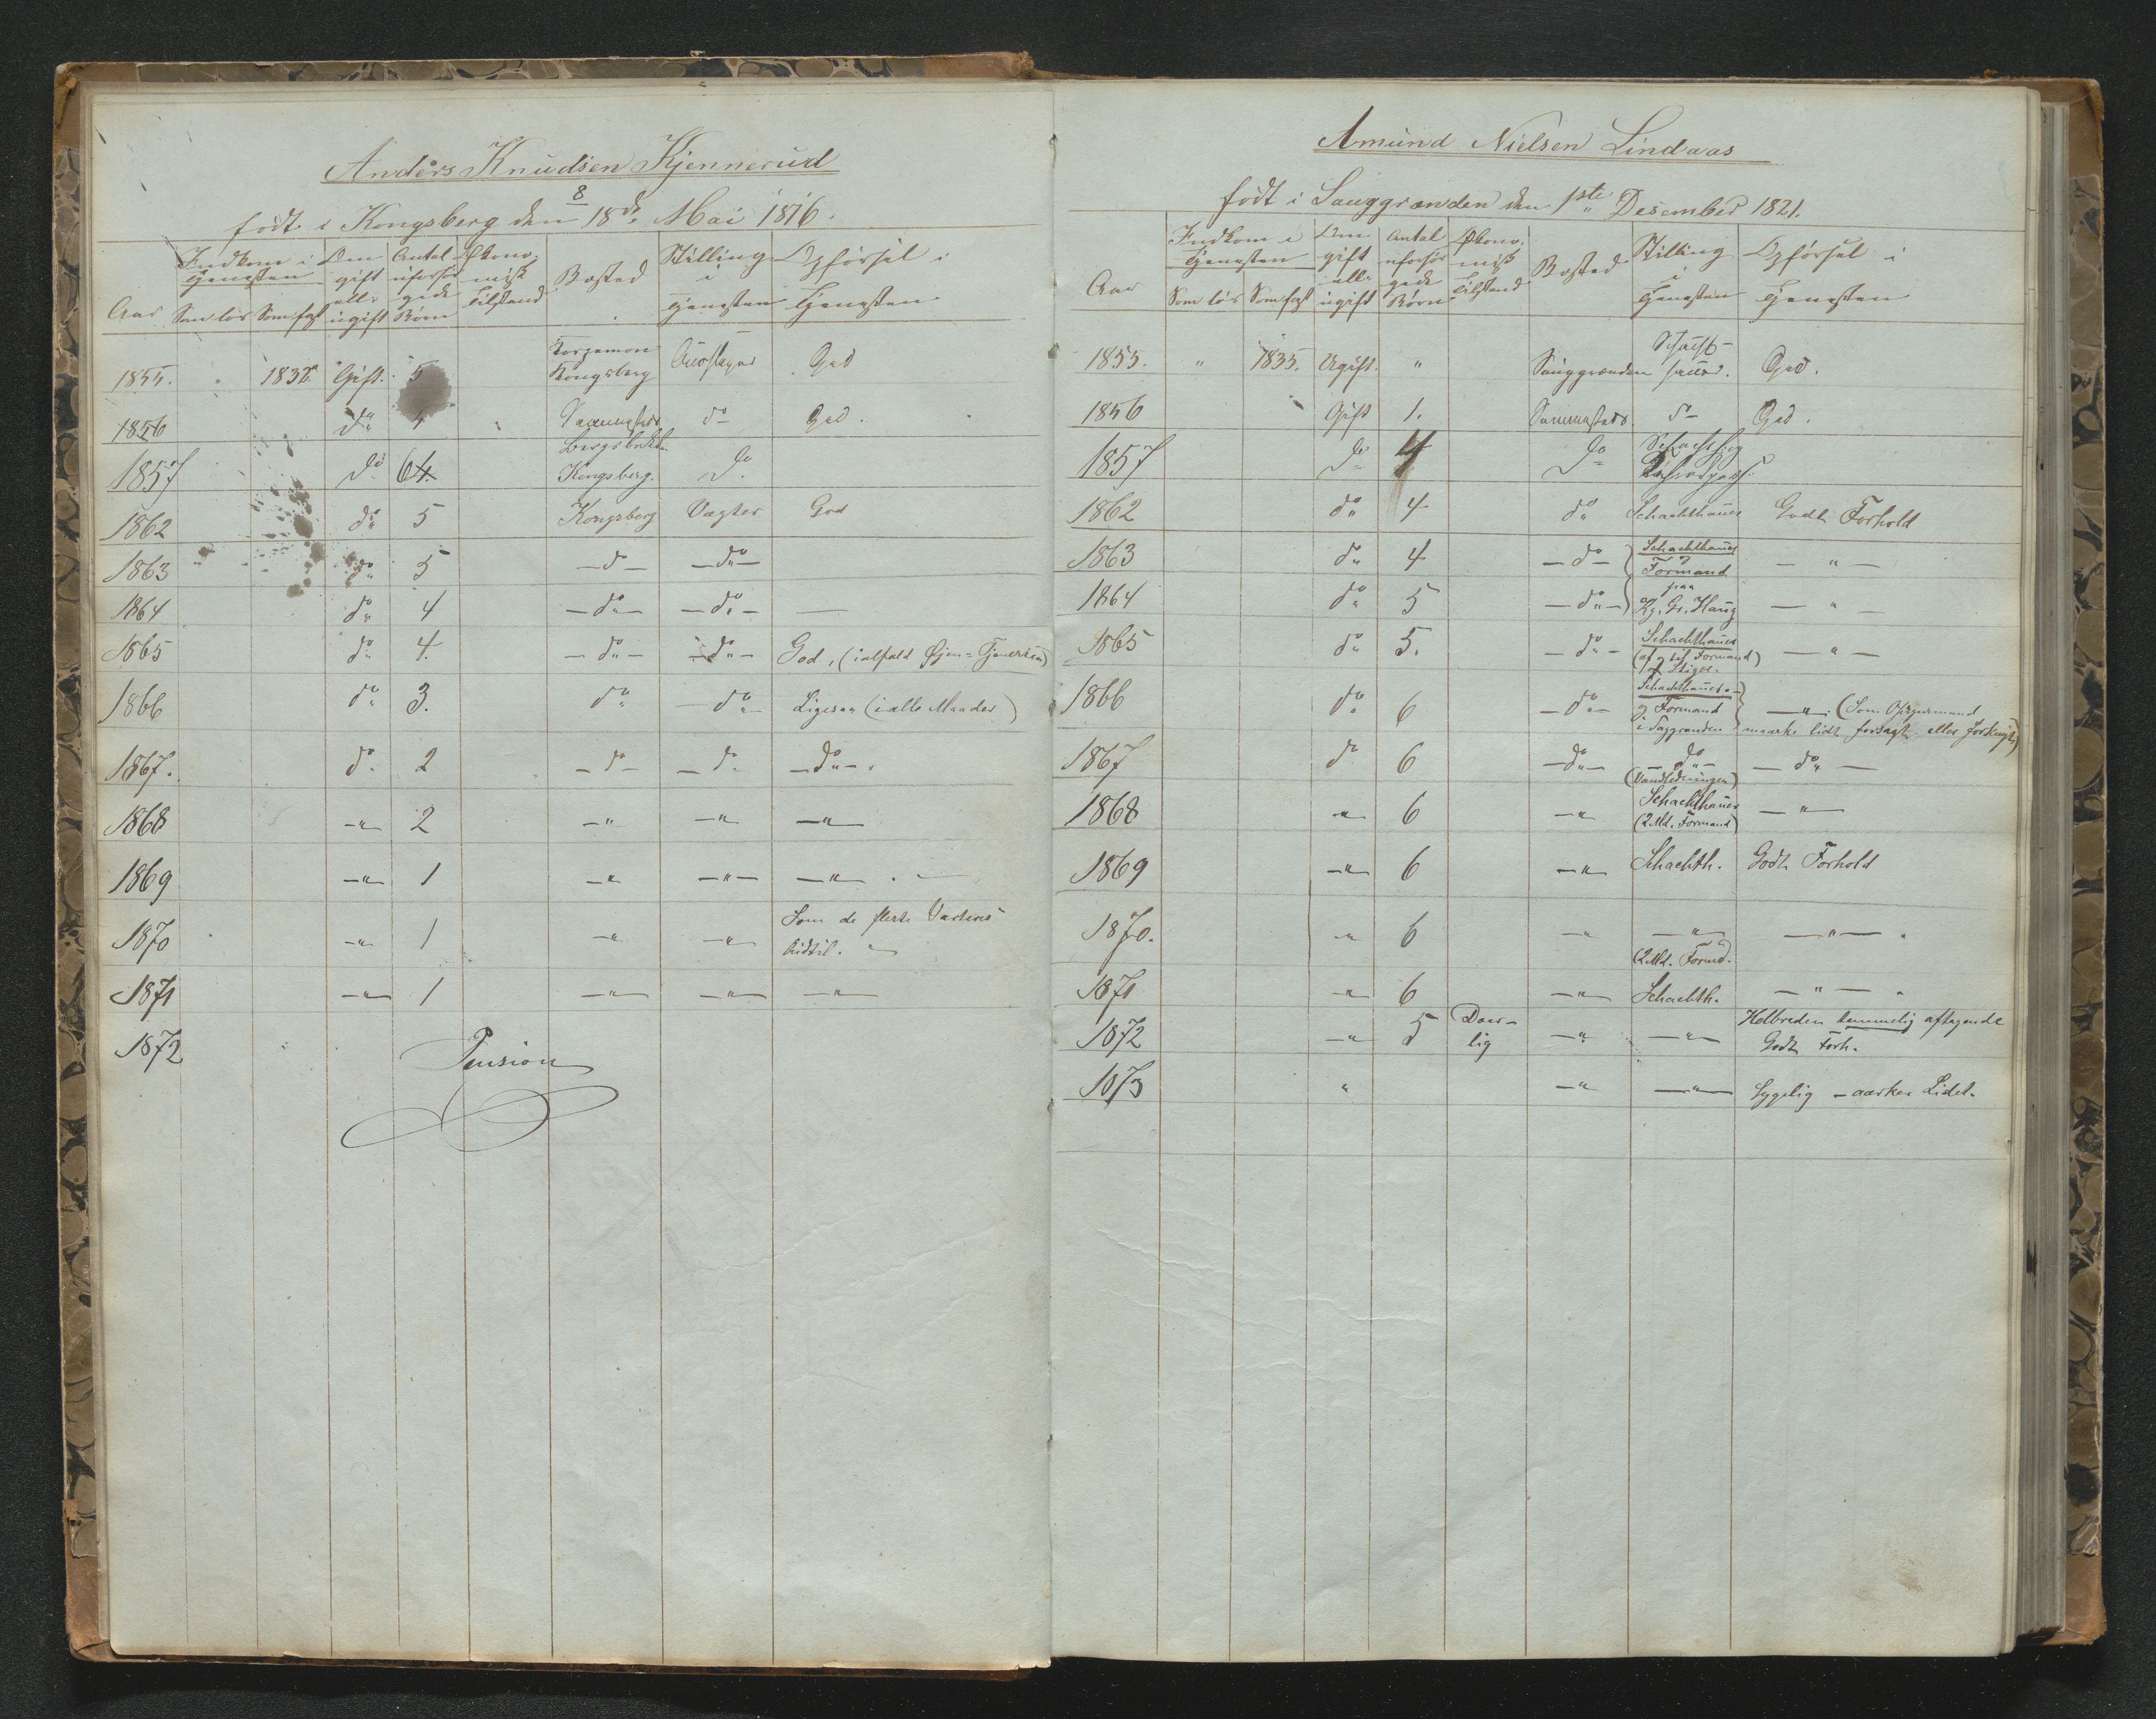 Anders Knudsen Kjennerud
8
født i Kongsberg den 18de Mai 1816.
Aar
Indkom i Tjenesten
Som løs Som fast
Om gift eller ugift
Antal uforsørgede Børn
Økonomisk Tilstand
Bosted
Stilling i Tjenesten
Opførsel i Tjenesten
1855. Gift. 5 Kongsberg God
1856 do 4 Sammesteds do God.
1857 do 64. Kongsberg. do
1862 do 5 Kongsberg Vægter God
1863 do 5 – do – – do –
1864 do 4 – do – – do – —
1865 do 4. – do – – do – God, (ialfald Øjen=Tjeneren)
1866 do 3. do – do – Ligesaa (i alle Maader)
1867. do 2 – do – – do – do – .
1868 – " – 2 – " – " – – " –
1869 – " – 1 – " – " – – " – . —
1870 – " – 1 – " – " – Som de fleste
hidtil. —
1871 – " – 1 – " – – " – – " –
1872 Pension
Amund Nielsen Lindaas
født i Sauggrenden den 1ste Desember 1821.
Aar
Indkom i Tjenesten
Som løs Som fast
Om gift eller ugift
Antal uforsørgede Børn
Økonomisk Tilstand
Bosted
Stilling i Tjenesten
Opførsel i Tjenesten
1855. " 1835. Ugift. " Sauggrænden God.
1856 Gift 1. Sammesteds. do God.
1857 do 4 do
1862 do 4 do Schachthauer Godt Forhold
1863 do 4 – do – Schachthauer
og
Formand – " –
1864 do 5 – do – paa
Kg. Gr. Haug — " –
1865 do 5. – do – Schachthauer — " –
1866 do 6 – do – Schachthauer
og Formand — " – (Som
1867 do 6 – do – – do – – do –
(Vandledningen)
1868 – " – 6 – " Schachthauer — " –
(2 Md. Formand)
1869 – " – 6 – " – Schachth. Godt Forhold
1870. – " 6 – " – " – — " – .
(2 Md. Formd.
1871 – " 6 – " – Schachth. – " – .
1872 – " 5 Daarlig – " – " – Helbreden temmelig aftagende
Godt Forh.
1873 " – " – " – Sygelig